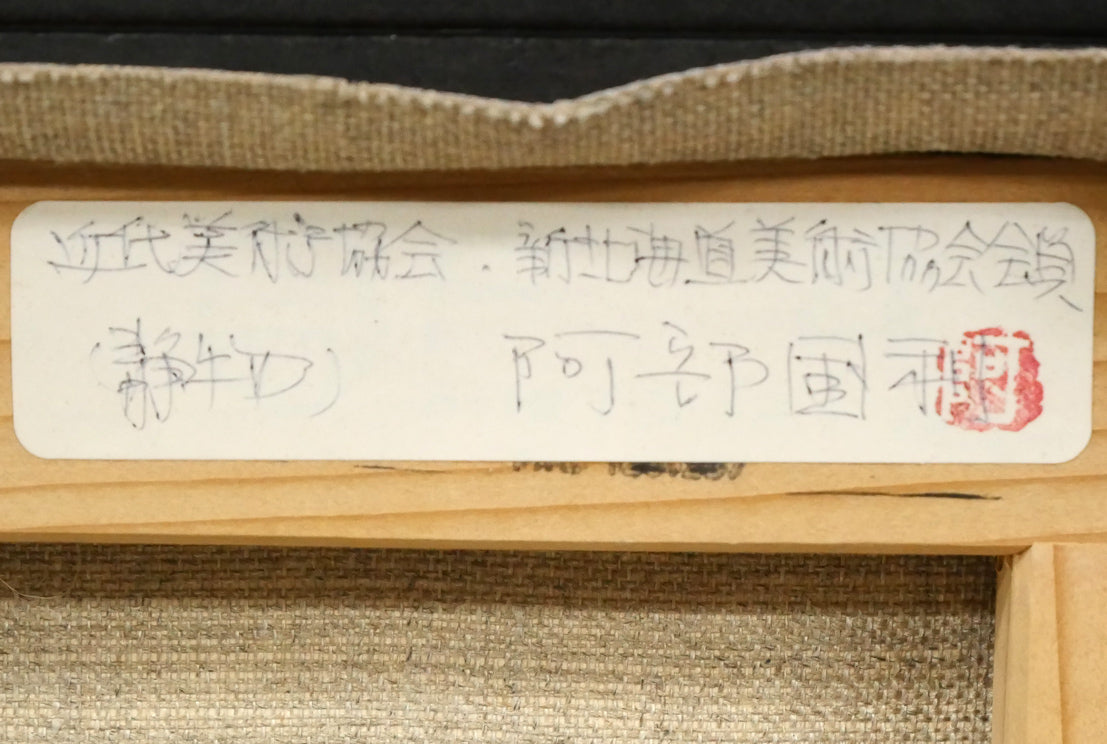 近代美術協会・新北海道美術協会会員
(静物) 阿部国利